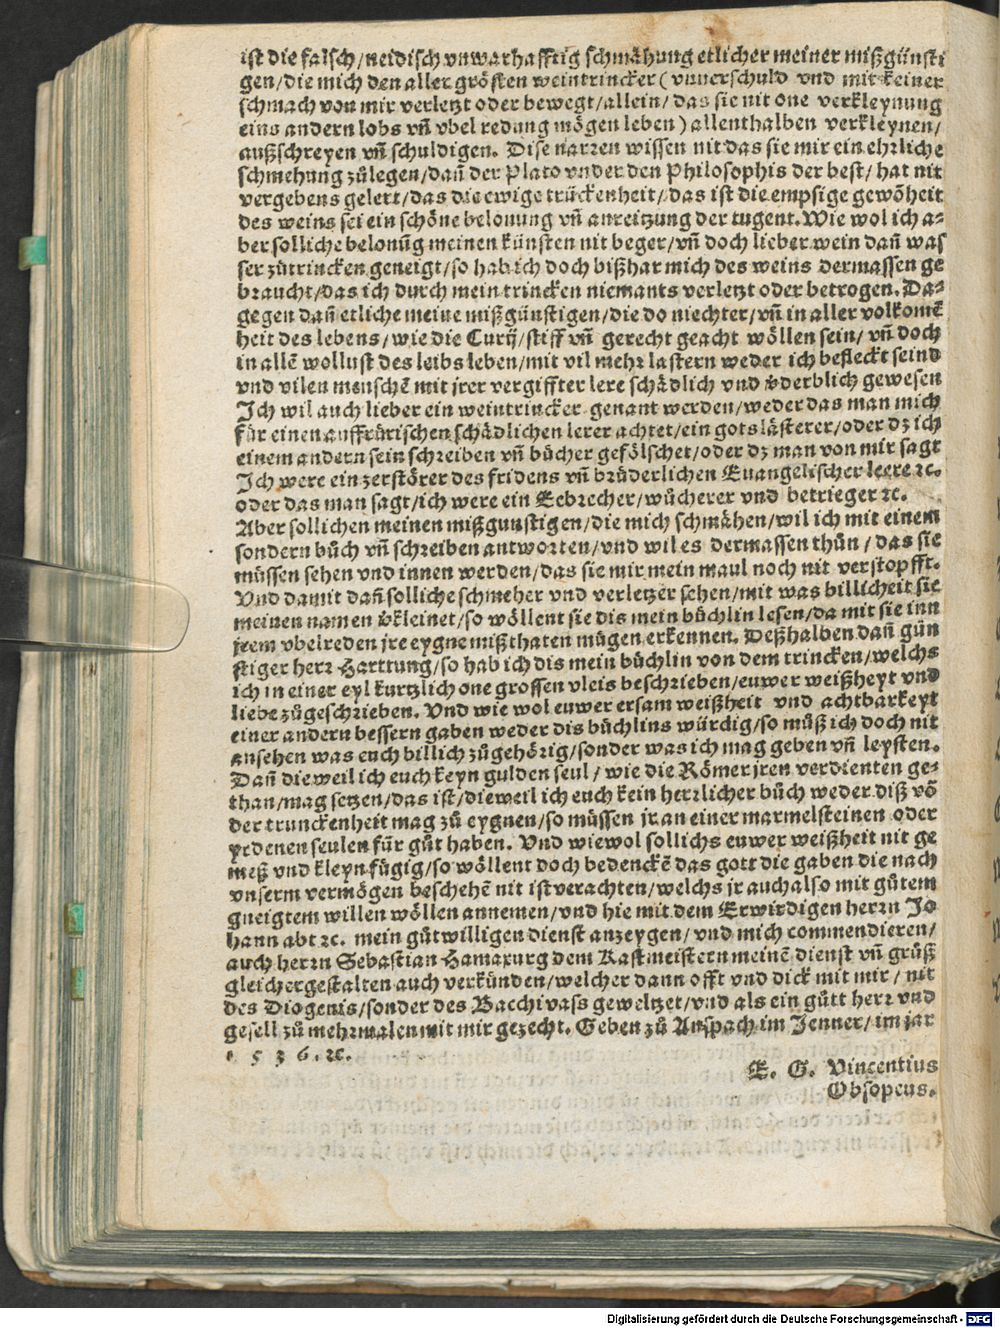 ist die falsch/neidisch vnwarhafftig schmåhung etlicher meiner mißgünsti
gen/die mich den aller grösten weintrincker (vnuerschuld vnd mit keiner
schmach von mir verletzt oder bewegt/allein/das sie nit one verkleynung
eins andern lobs vñ vbel redung mögen leben) allenthalben verkleynen/
außschreyen vñ schuldigen. Dise narren wissen nit das sie mir ein ehrliche
schmehung zůlegen/dañ der Plato vnder den Philosophis der best/hat nit
vergebens gelert/das die ewige trůckenheit/das ist die empsige gewöheit
des weins sei ein schöne belonung vñ anreitzung der tugent. Wie wol ich a⸗
ber solliche belonũg meinen künsten nit beger/vñ doch lieber wein dañ was
ser zůtrincken geneigt/so hab ich doch bißhar mich des weins dermassen ge
braucht/das ich durch mein trincken niemants verletzt oder betrogen. Da⸗
gegen dañ etliche meine mißgünstigen/die do niechter/vñ in aller volkomẽ
heit des lebens/wie die Curij/stiff vñ gerecht geacht wöllen sein/vñ doch
in allẽ wollust des leibs leben/mit vil mehr lastern weder ich befleckt seind
vnd vilen menschẽ mit jrer vergiffter lere schådlich vnd v̄derblich gewesen
Ich wil auch lieber ein weintrincker genant werden/weder das man mich
für einen auffrürischen schådlichen lerer achtet/ein gotslåsterer/oder dz ich
einem andern sein schreiben vñ bücher gefölschet/oder dz man von mir sagt
Ich were ein zerstörer des fridens vñ brüderlichen Euangelischer leere ꝛc.
oder das man sagt/ich were ein Eebrecher/wůcherer vnd betrieger ꝛc.
Aber sollichen meinen mißgunstigen/die mich schmåhen/wil ich mit einem
sondern bůch vñ schreiben antworten/vnd wil es dermassen thůn/das sie
müssen sehen vnd innen werden/das sie mir mein maul noch nit verstopfft.
Vnd damit dañ solliche schmeher vnd verletzer sehen/mit was billicheit sie
meinen namen v̄kleinet/so wöllent sie dis mein büchlin lesen/da mit sie inn
jrem vbelreden jre eygne mißthaten mügen erkennen. Deßhalben dañ gün
stiger herr Harttung/so hab ich dis mein büchlin von dem trincken/welchs
ich in einer eyl kurtzlich one grossen vleis beschrieben/euwer weißheyt vnd
liebe zůgeschrieben. Vnd wie wol euwer ersam weißheit vnd achtbarkeyt
einer andern bessern gaben weder dis büchlins würdig/so můß ich doch nit
ansehen was euch billich zůgehörig/sonder was ich mag geben vñ leysten.
Dañ dieweil ich euch keyn gulden seul/wie die Römer jren verdienten ge⸗
than/mag setzen/das ist/dieweil ich euch kein herrlicher bůch weder diß võ
der trunckenheit mag zů eygnen/so müssen jr an einer marmelsteinen oder
yrdenen seulen für gůt haben. Vnd wiewol sollichs euwer weißheit nit ge
meß vnd kleynfügig/so wöllent doch bedenckẽ das gott die gaben die nach
vnserm vermögen beschehẽ nit ist verachten/welchs jr auch also mit gůtem
gneigtem willen wöllen annemen/vnd hie mit dem Erwirdigen herrn Jo
hann abt ꝛc. mein gůtwilligen dienst anzeygen/vnd mich commendieren/
auch herrn Sebastian Hamaxurg dem Kastmeistern meinẽ dienst vñ grůß
gleicher gestalten auch verkünden/welcher dann offt vnd dick mit mir/nit
des Diogenis/sonder des Bacchi vass geweltzet/vnd als ein gůtt herr vnd
gesell zů mehrmalen mit mir gezecht. Geben zů Anspach im Jenner/im jar
1 5 3 6. ꝛc.
E. G. Vincentius
Obsopeus.
Digitalisierung gefördert durch die Deutsche Forschungsgemeinschaft - DFG